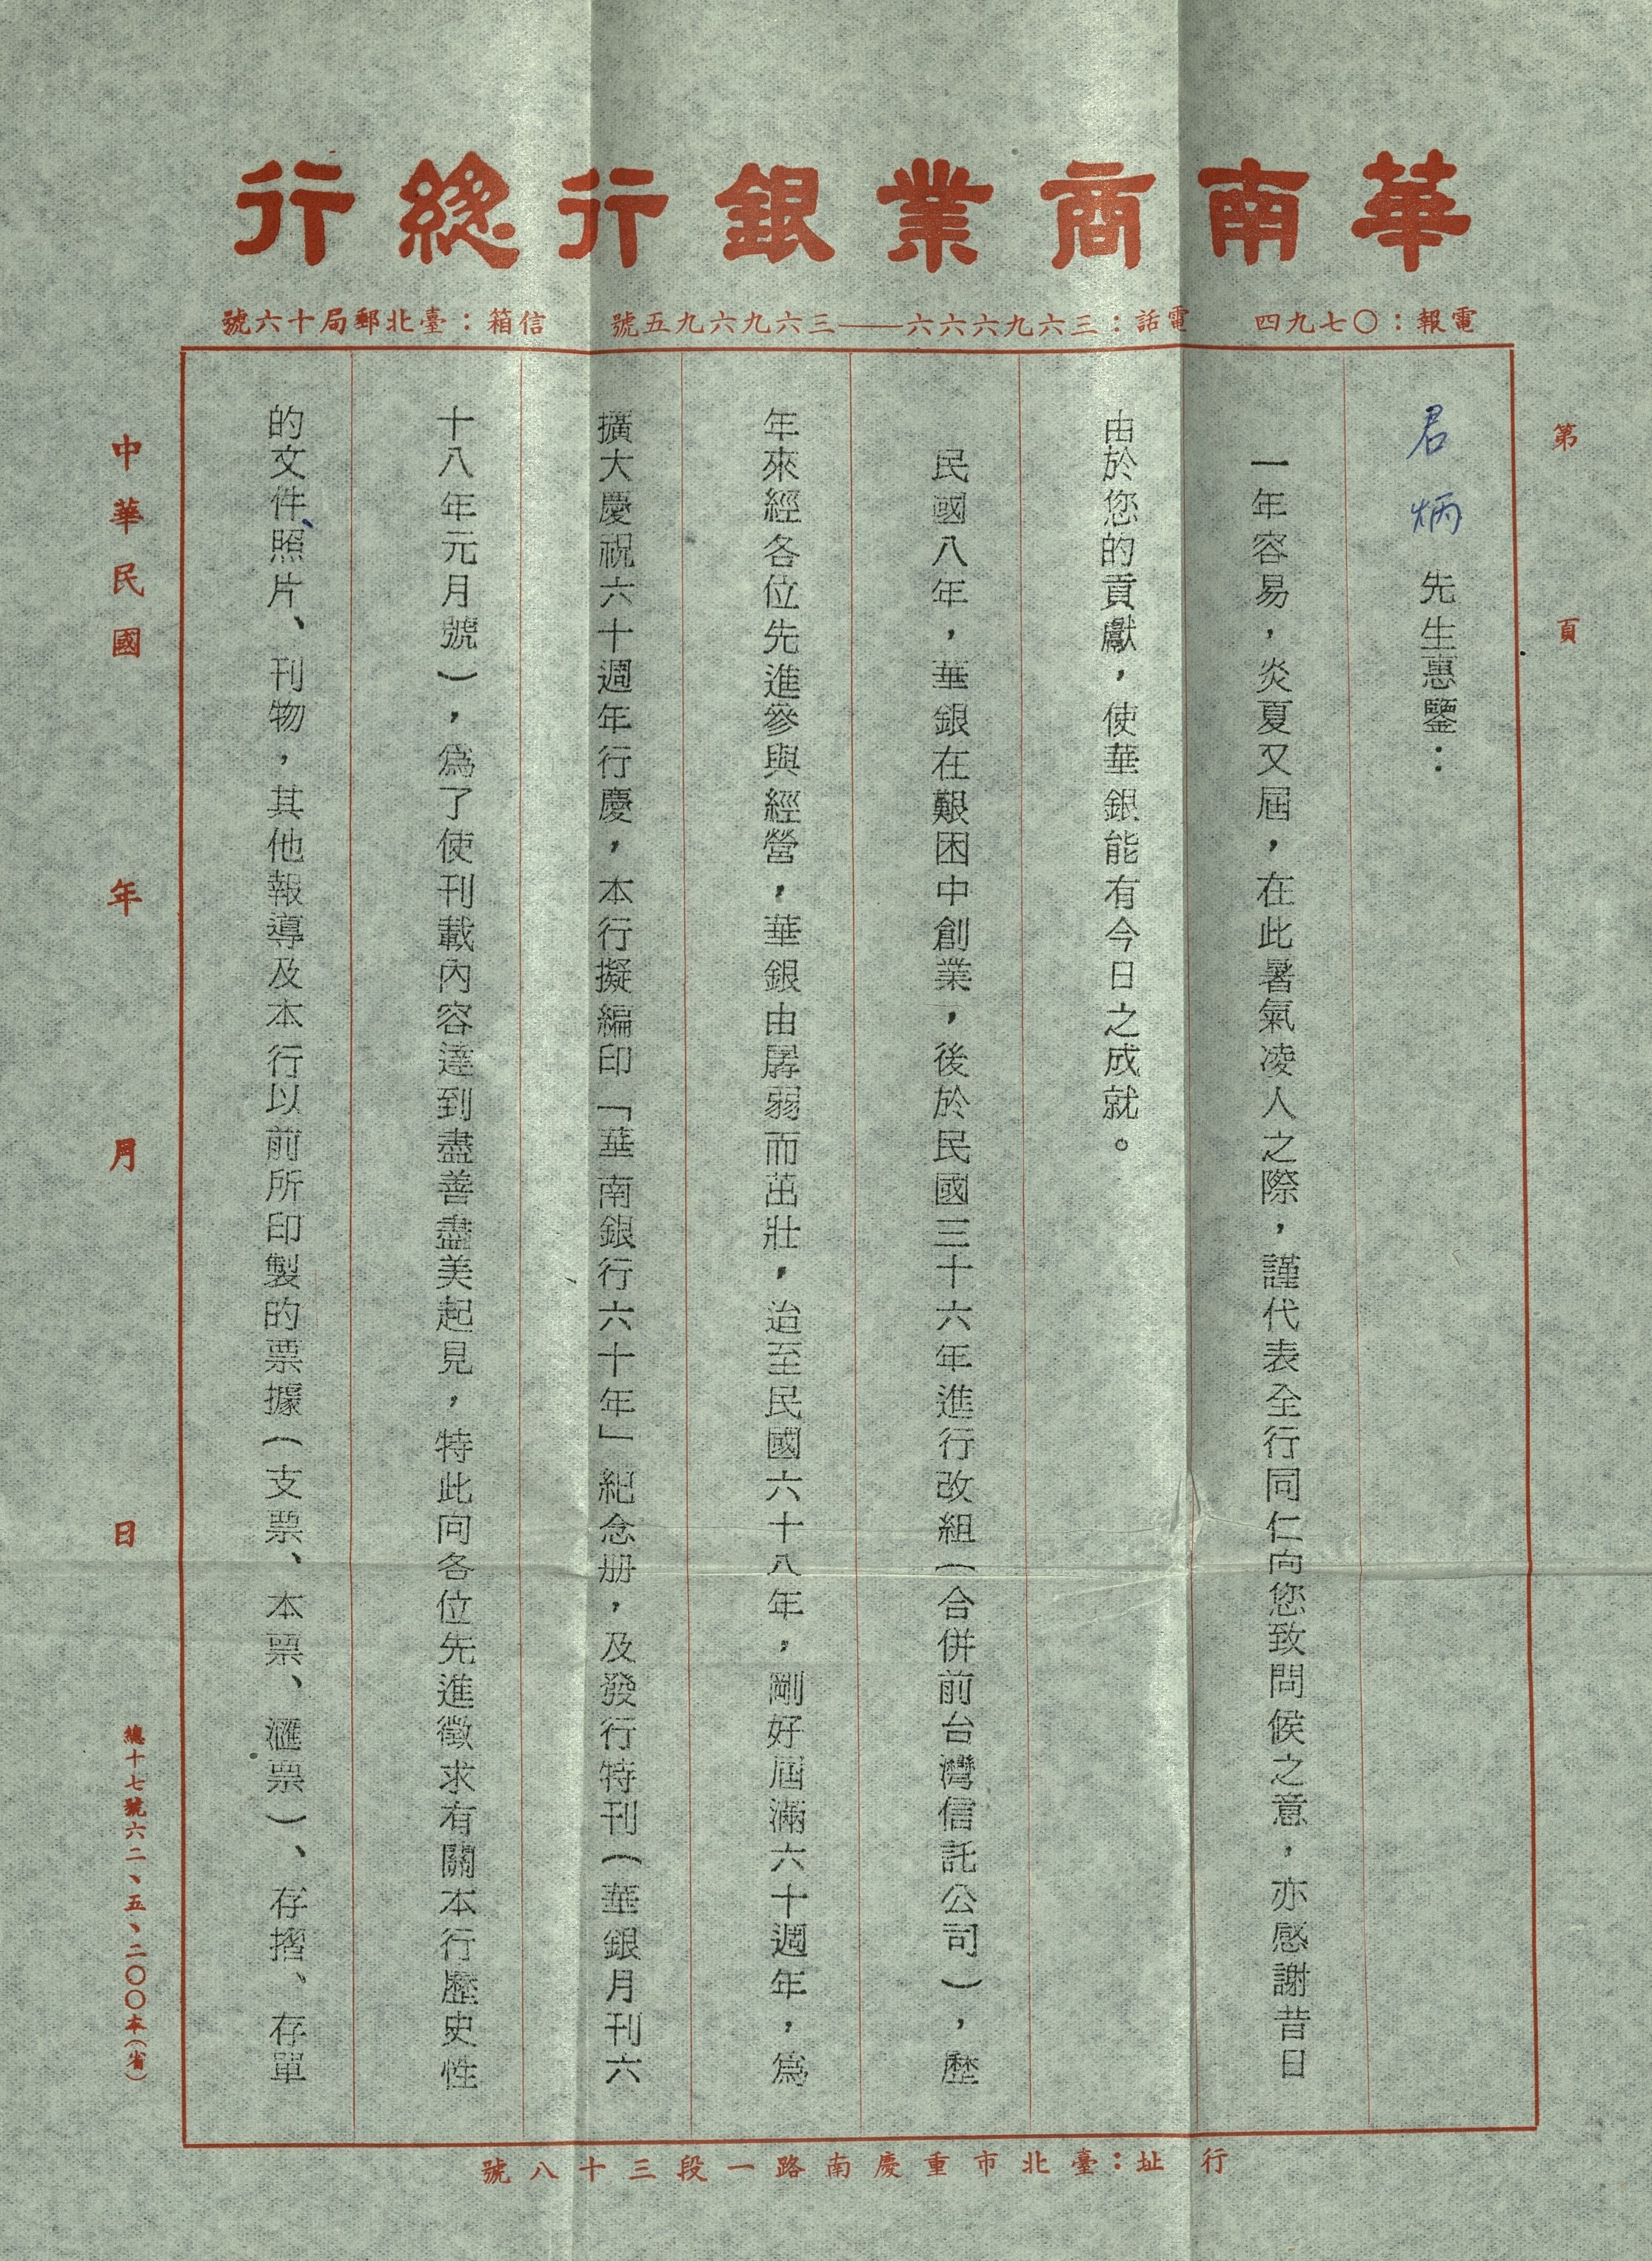 華南商業銀行總行
電報：〇七九四
電話：三六九六六六——三六九六九五號
信箱：臺北郵局十六號
第　頁
君炳先生惠鑒：
一年容易，炎夏又屆，在此暑氣凌人之際，謹代表全行同仁向您致問候之意，亦感謝昔日
由於您的貢獻，使華銀能有今日之成就。
民國八年，華銀在艱困中創業，後於民國三十六年進行改組（合併前台灣信託公司），歷
年來經各位先進參與經營，華銀由孱弱而茁壯，迨至民國六十八年，剛好屆滿六十週年，為
擴大慶祝六十週年行慶，本行擬編印「華南銀行六十年」紀念册，及發行特刊（華銀月刊六
十八年元月號），為了使刊載內容達到盡善盡美起見，特此向各位先進徵求有關本行歷史性
的文件、照片、刊物，其他報導及本行以前所印製的票據（支票、本票、滙票）、存摺、存單
中華民國　年　月　日
總十七號六二、五、二〇〇本（省）
行址：臺北市重慶南路一段三十八號